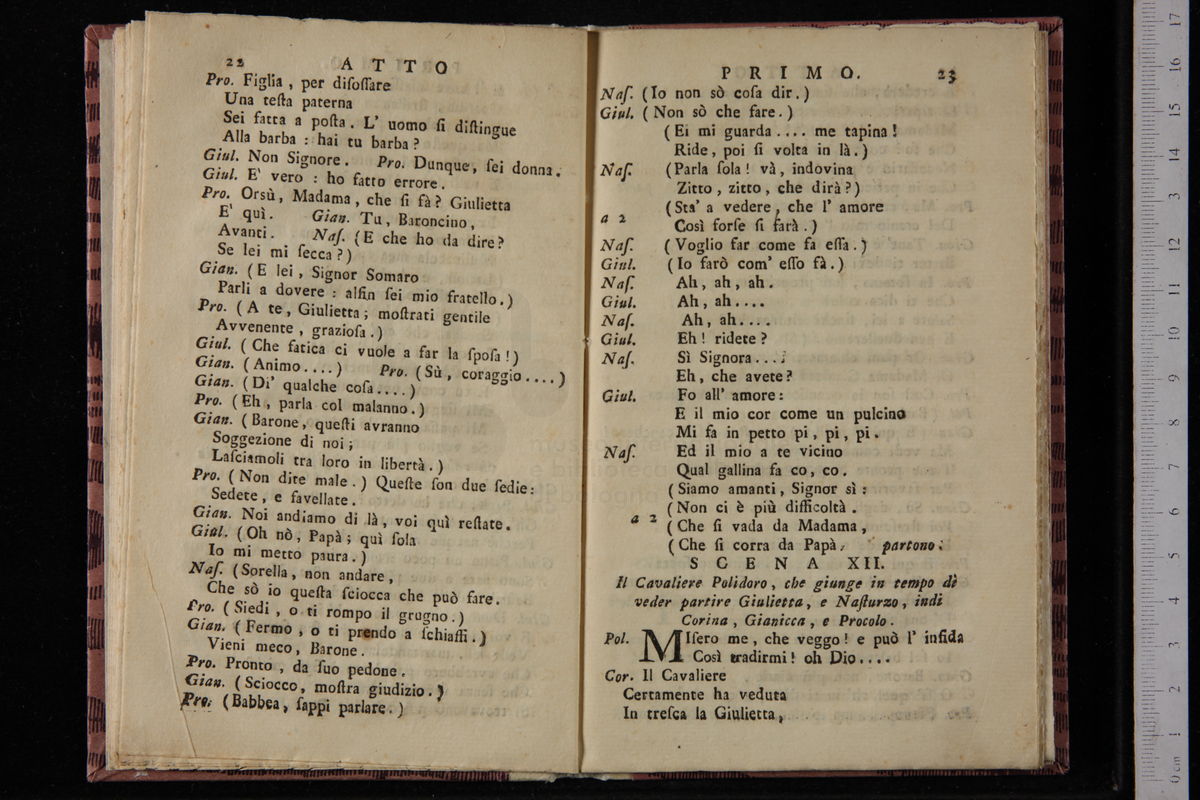 22 ATTO
Pro. Figlia, per disoſſare
Una teſta paterna
Sei fatta a poſta. L' uomo ſi diſtingue
Alla barba : hai tu barba?
Giul. Non Signore. Pro. Dunque, ſei donna.
Giul. E' vero : ho fatto errore.
Pro. Orsù, Madama, che ſi fà? Giulietta
E' quì. Gian. Tu, Baroncino,
Avanti. Naſ. (E che ho da dire?
Se lei mi ſecca?)
Gian. (E lei, Signor Somaro
Parli a dovere : alfin ſei mio fratello.)
Pro. (A te, Giulietta; moſtrati gentile
Avvenente, grazioſa.)
Giul. (Che fatica ci vuole a far la ſpoſa!)
Gian. (Animo....) Pro. (Sù, coraggio....)
Gian. (Di' qualche coſa....)
Pro. (Eh, parla col malanno.)
Gian. (Barone, queſti avranno
Soggezione di noi;
Laſciamoli tra loro in libertà.)
Pro. (Non dite male.) Queſte ſon due ſedie:
Sedete, e favellate.
Gian. Noi andiamo di là, voi quì reſtate.
Giul. (Oh nò, Papà; quì ſola
Io mi metto paura.)
Naſ. (Sorella, non andare,
Che sò io queſta ſciocca che può fare.
Pro. (Siedi, o ti rompo il grugno.)
Gian. (Fermo, o ti prendo a ſchiaffi.)
Vieni meco, Barone.
Pro. Pronto, da ſuo pedone.
Gian. (Sciocco, moſtra giudizio.)
Pro. (Babbea, ſappi parlare.)
PRIMO. 23
Naſ. (Io non sò coſa dir.)
Giul. (Non sò che fare.)
(Ei mi guarda.... me tapina!
Ride, poi ſi volta in là.)
Naſ. (Parla ſola! và, indovina
Zitto, zitto, che dirà?)
(Sta' a vedere, che l' amore
a 2 Così forſe ſi farà.)
Naſ. (Voglio far come fa eſſa.)
Giul. (Io farò com' eſſo fà.)
Naſ. Ah, ah, ah.
Giul. Ah, ah....
Naſ. Ah, ah....
Giul. Eh! ridete?
Naſ. Sì Signora....
Eh, che avete?
Giul. Fo all' amore:
E il mio cor come un pulcino
Mi fa in petto pi, pi, pi.
Naſ. Ed il mio a te vicino
Qual gallina fa co, co.
(Siamo amanti, Signor sì:
(Non ci è più difficoltà.
a 2 (Che ſi vada da Madama,
(Che ſi corra da Papà. partono.
SCENA XII.
Il Cavaliere Polidoro, che giunge in tempo di
veder partire Giulietta, e Naſturzo, indi
Corina, Gianicca, e Procolo.
Pol. MIſero me, che veggo! e può l' infida
Così tradirmi! oh Dio....
Cor. Il Cavaliere
Certamente ha veduta
In treſca la Giulietta,